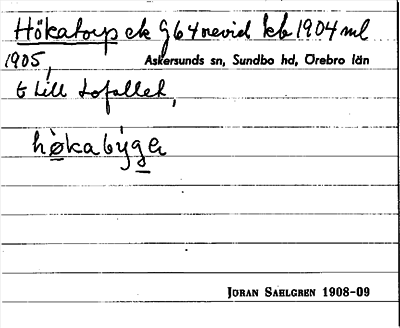 Hökatorp ek G64 nevid kb 1904 ml
1905,
Askersunds sn, Sundbo hd, Örebro län
t till Lofallet,
hø̀kabýga
JÖRAN SAHLGREN 1908-09